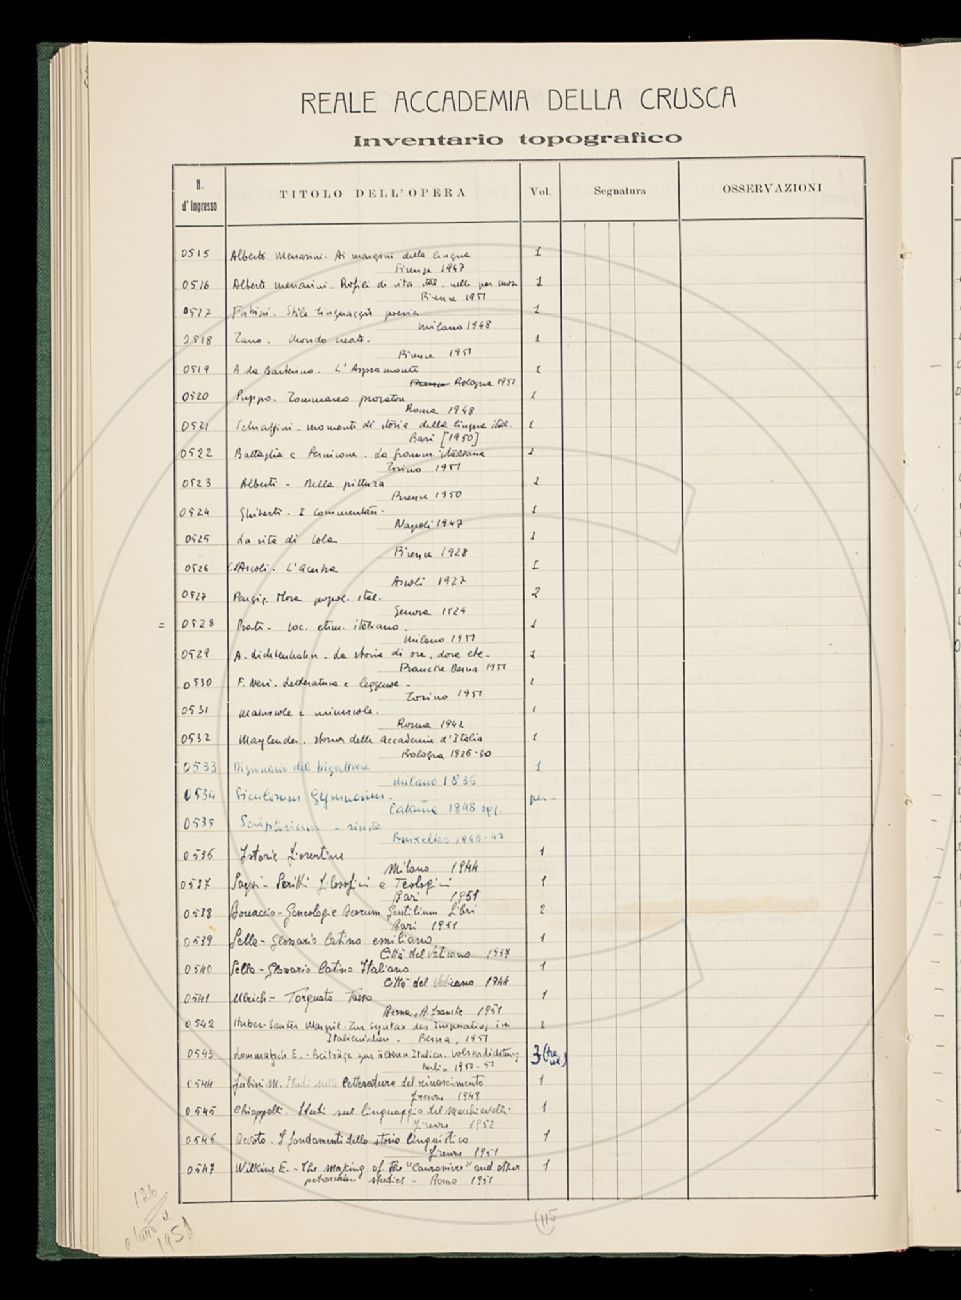 REALE ACCADEMIA DELLA CRUSCA
Inventario topografico
N. d'Ingresso TITOLO DELL'OPERA Vol. Segnatura OSSERVAZIONI
0515 Alberto Menarini. Ai margini della lingua 1
Firenze 1947
0516 Alberto Menarini. Profili di vita ital. nelle par. 1
Firenze 1951
0517 Fubini. Stile linguaggio poesia 1
Milano 1948
0518 Mondo creato. 1
Firenze 1951
0519 A. da Barberino. L'Aspramonte 1
Bologna 1951
0520 Puppo. Tommaseo prosatore 1
Roma 1948
0521 Schiaffini - momenti di storia della lingua ital. 1
Bari [1950]
0522 Battaglia e Pernicone. La gramm. italiana 1
Torino 1951
0523 Alberti - Della pittura 1
Firenze 1950
0524 Ghiberti. I commentari. 1
Napoli 1947
0525 La vita di Cola 1
Firenze 1928
0526 C. d'Ascoli. L'acerba 1
Ascoli 1927
0527 ital. 2
Genova
= 0528 Prati. Voc. etim. italiano. 1
Milano 1951
0529 A. Lichtenhahn. La storia di ora, dora etc. 1
Francke Berna 1951
0530 F. Neri. Letteratura e leggende. 1
Torino 1951
0531 Maiuscole e minuscole. 1
Roma 1942
0532 Maylender. Storia delle accademie d'Italia 1
Bologna 1926-30
0533 1
Milano 1836
0534 Siculorum Gymnasium.
Catania 1948 sgg.
0535 Scriptorium - rivista
Bruxelles 1946-47
0536 Istorie fiorentine 1
Milano 1944
0537 Scritti filosofici e Teologici 1
Bari 1951
0538 Boccaccio - Genealogie Deorum Gentilium Libri 2
Bari 1951
0539 Sella - Glossario latino emiliano 1
Città del Vaticano 1937
0540 Sella - Glossario latino Italiano 1
Città del Vaticano 1944
0541 Ulrich - Torquato Tasso 1
Berna, A. Francke 1951
0542 Huber-Sauter Margrit. Zur Syntax des Imperativs im 1
Italienischen. - Berna, 1951
0543 Lommatzsch E. - Beiträge zur älteren Italien. Volksdichtung 3 (tre vol.)
Berlin 1950-51
0544 Fubini M. Studi sulla letteratura del rinascimento 1
Firenze 1948
0545 Chiappelli. Studi sul linguaggio del Machiavelli. 1
Firenze 1952
0546 Devoto. I fondamenti della storia linguistica 1
Firenze 1951
0547 Wilkins E. - The making of the "Canzoniere" and other 1
petrarchan studies - Roma 1951
a tutto il
1951
(115